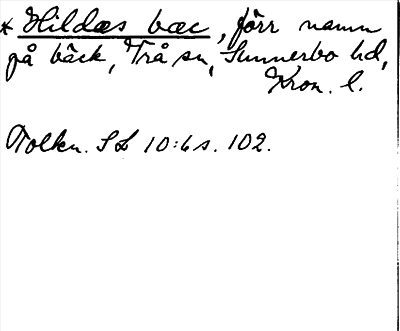 * Hildæs bæc, förr namn
på bäck, Trå sn, Sunnerbo hd,
Kron. l.
Tolkn. SL 10:6 s. 102.